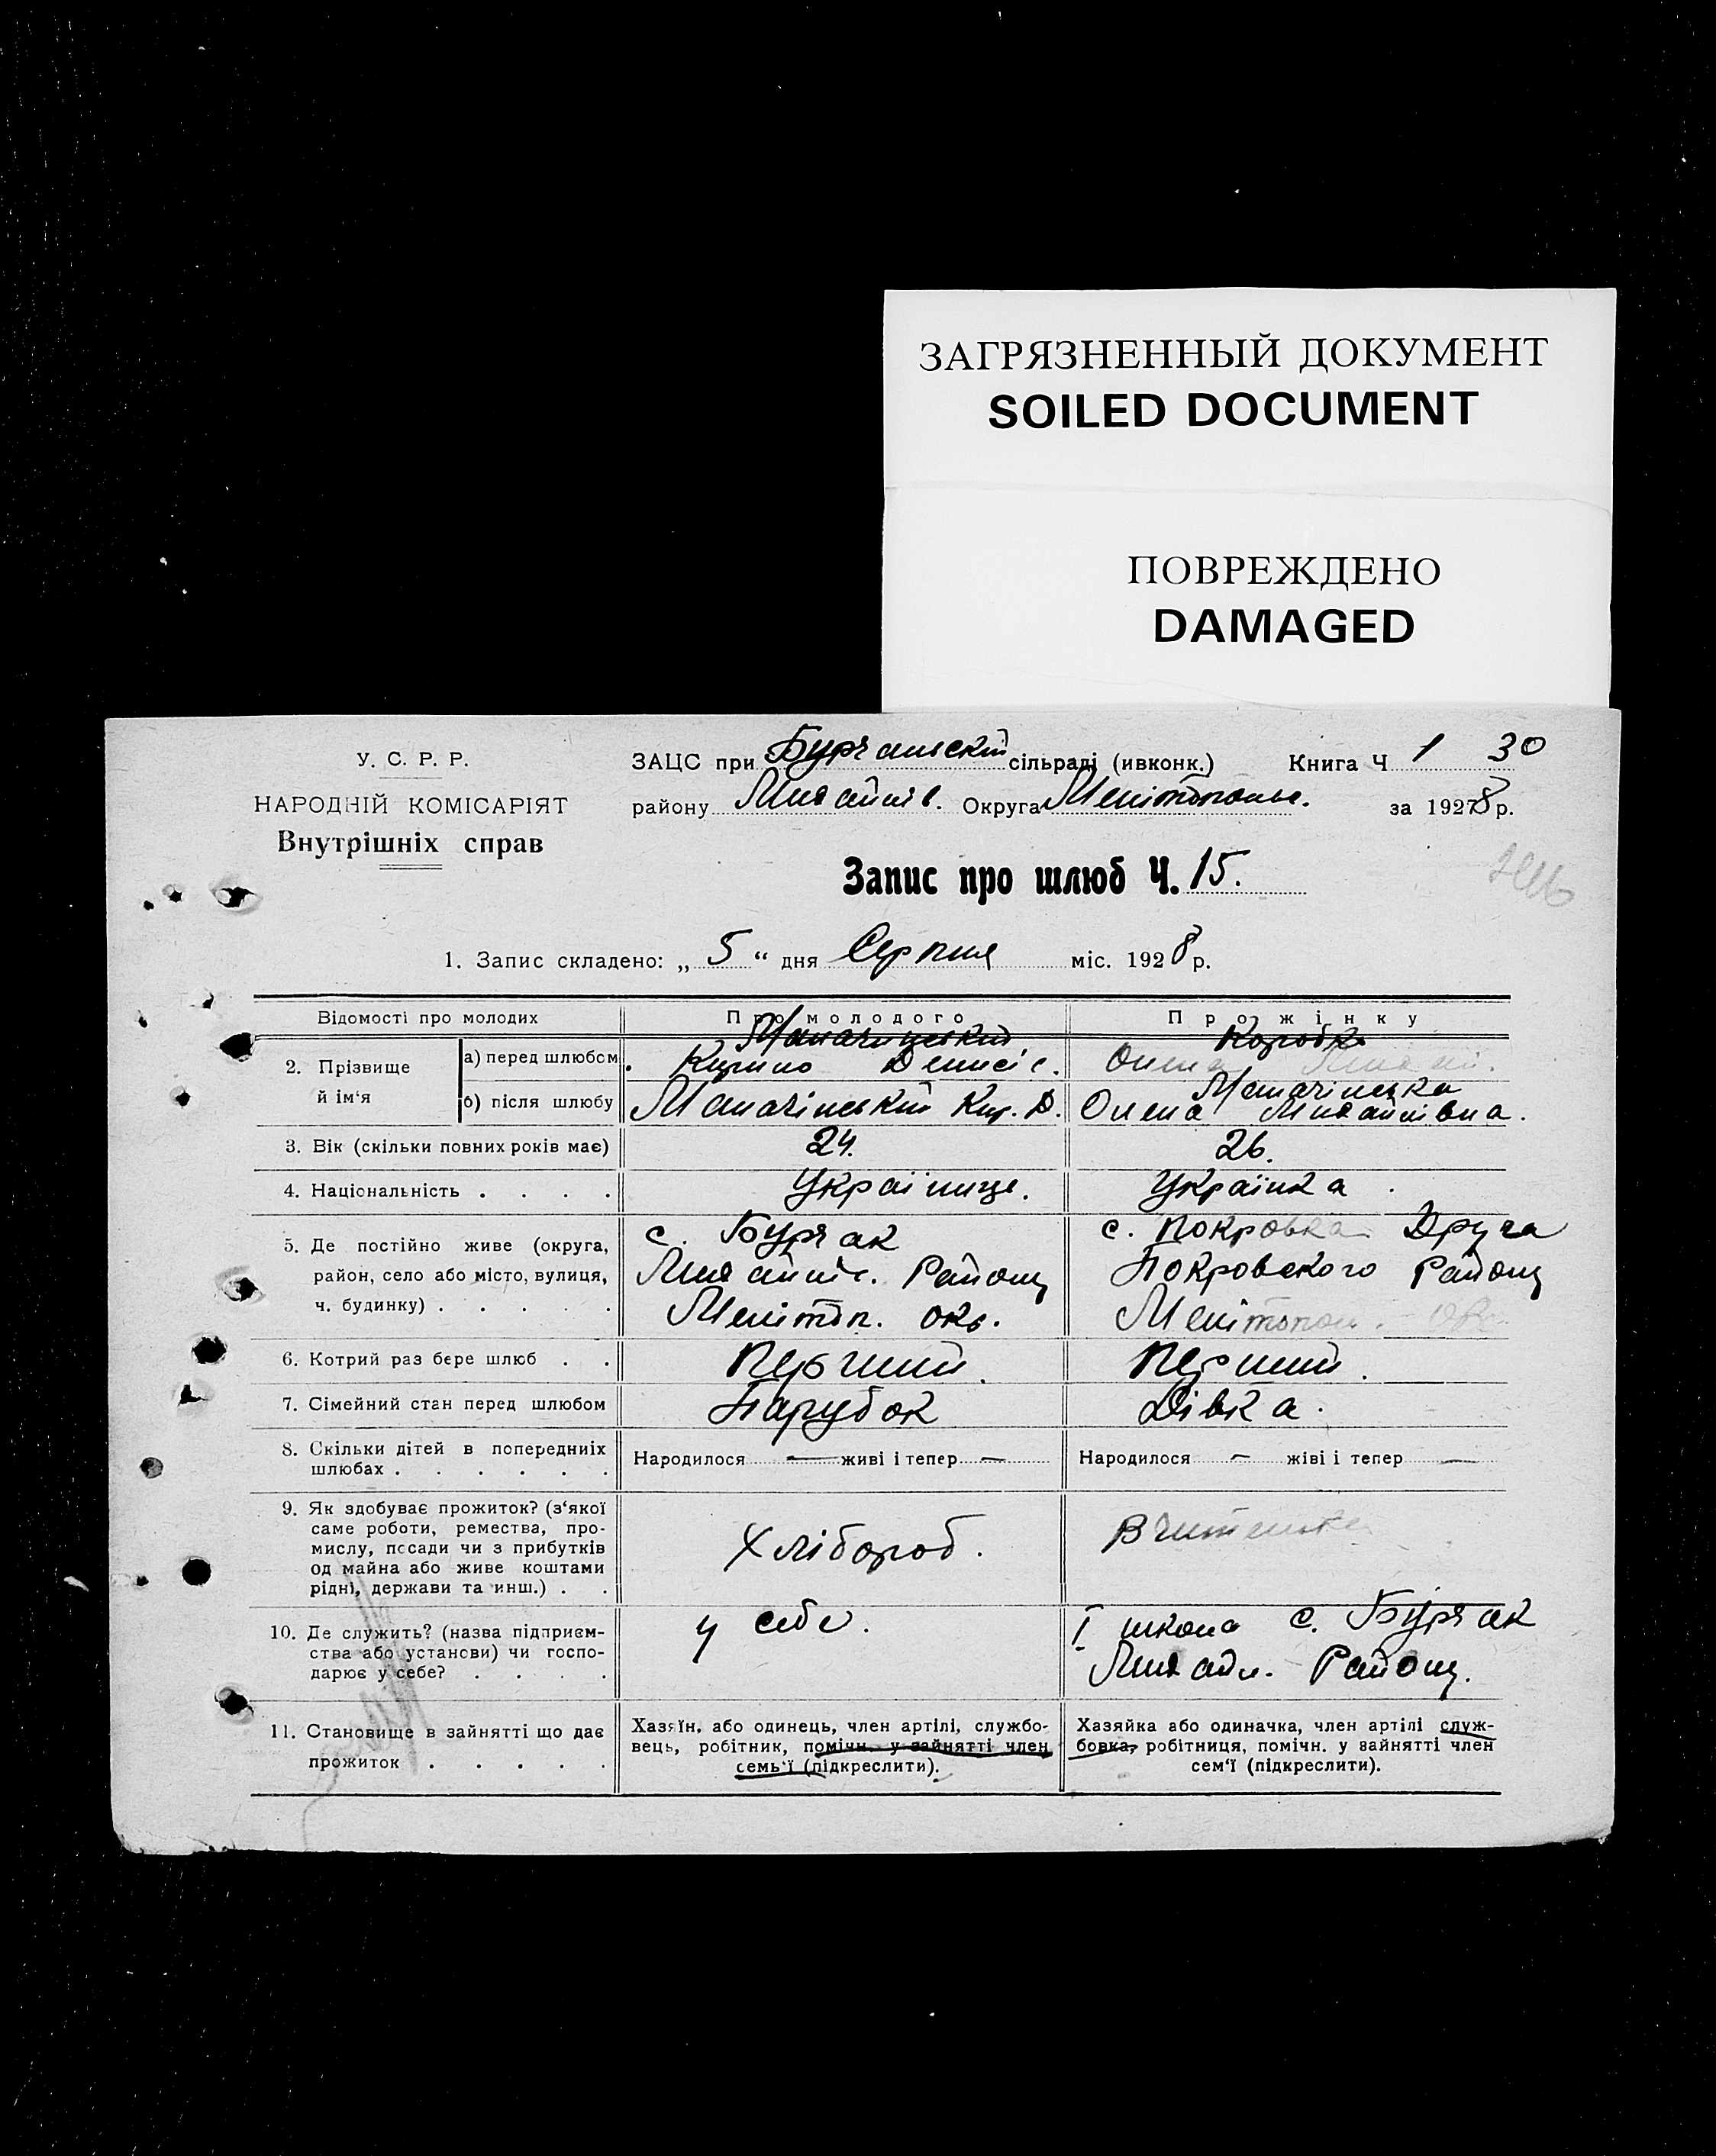 ЗАГРЯЗНЕННЫЙ ДОКУМЕНТ
SOILED DOCUMENT
ПОВРЕЖДЕНО
DAMAGED
У. С. Р. Р.
НАРОДНІЙ КОМІСАРІЯТ
Внутрішніх справ
ЗАЦС при Бурчанській сільраді (ивконк.) Книга Ч 1 30
району Михайлів. Округа Мелітопольс. за 1928 р.
Запис про шлюб Ч. 15.
1. Запис складено: „ 5 “ дня Серпня міс. 1928 р.
Відомості про молодих Про молодого Про жінку
2. Прізвище й ім‘я
а) перед шлюбом Кирило Денисів. Коробка Олена
б) після шлюбу Маначінський Кир. Д. Маначінська Олена Михайлівна.
3. Вік (скільки повних років має) 24. 26.
4. Національність . . . . Українце. Українка .
5. Де постійно живе (округа, район, село або місто, вулиця, ч. будинку) . . . . .
с. Бурчак
Михайлів. Району
Мелітоп. окр.
с. Покровка Друга
Покровского Району
Мелітопол. окр.
6. Котрий раз бере шлюб . . Перший. Перший.
7. Сімейний стан перед шлюбом Парубок Дівка.
8. Скільки дітей в попередниіх шлюбах . . . . . . Народилося — живі і тепер — Народилося — жіві і тепер —
9. Як здобуває прожиток? (з‘якої
саме роботи, ремества, про-
мислу, посади чи з прибутків
од майна або живе коштами
рідні, держави та инш.) . .
Хлібороб.
Вчителька
10. Де служить? (назва підприєм-
ства або установи) чи госпо-
дарює у себе? . . . .
у себе.
І школа с. Бурчак
Михайл. Району.
11. Становище в зайнятті що дає
прожиток . . . . .
Хазяїн, або одинець, член артілі, службо-
вець, робітник, помічн. у зайнятті член
семь‘ї (підкреслити).
Хазяйка або одиначка, член артілі служ-
бовка, робітниця, помічн. у зайнятті член
сем‘ї (підкреслити).